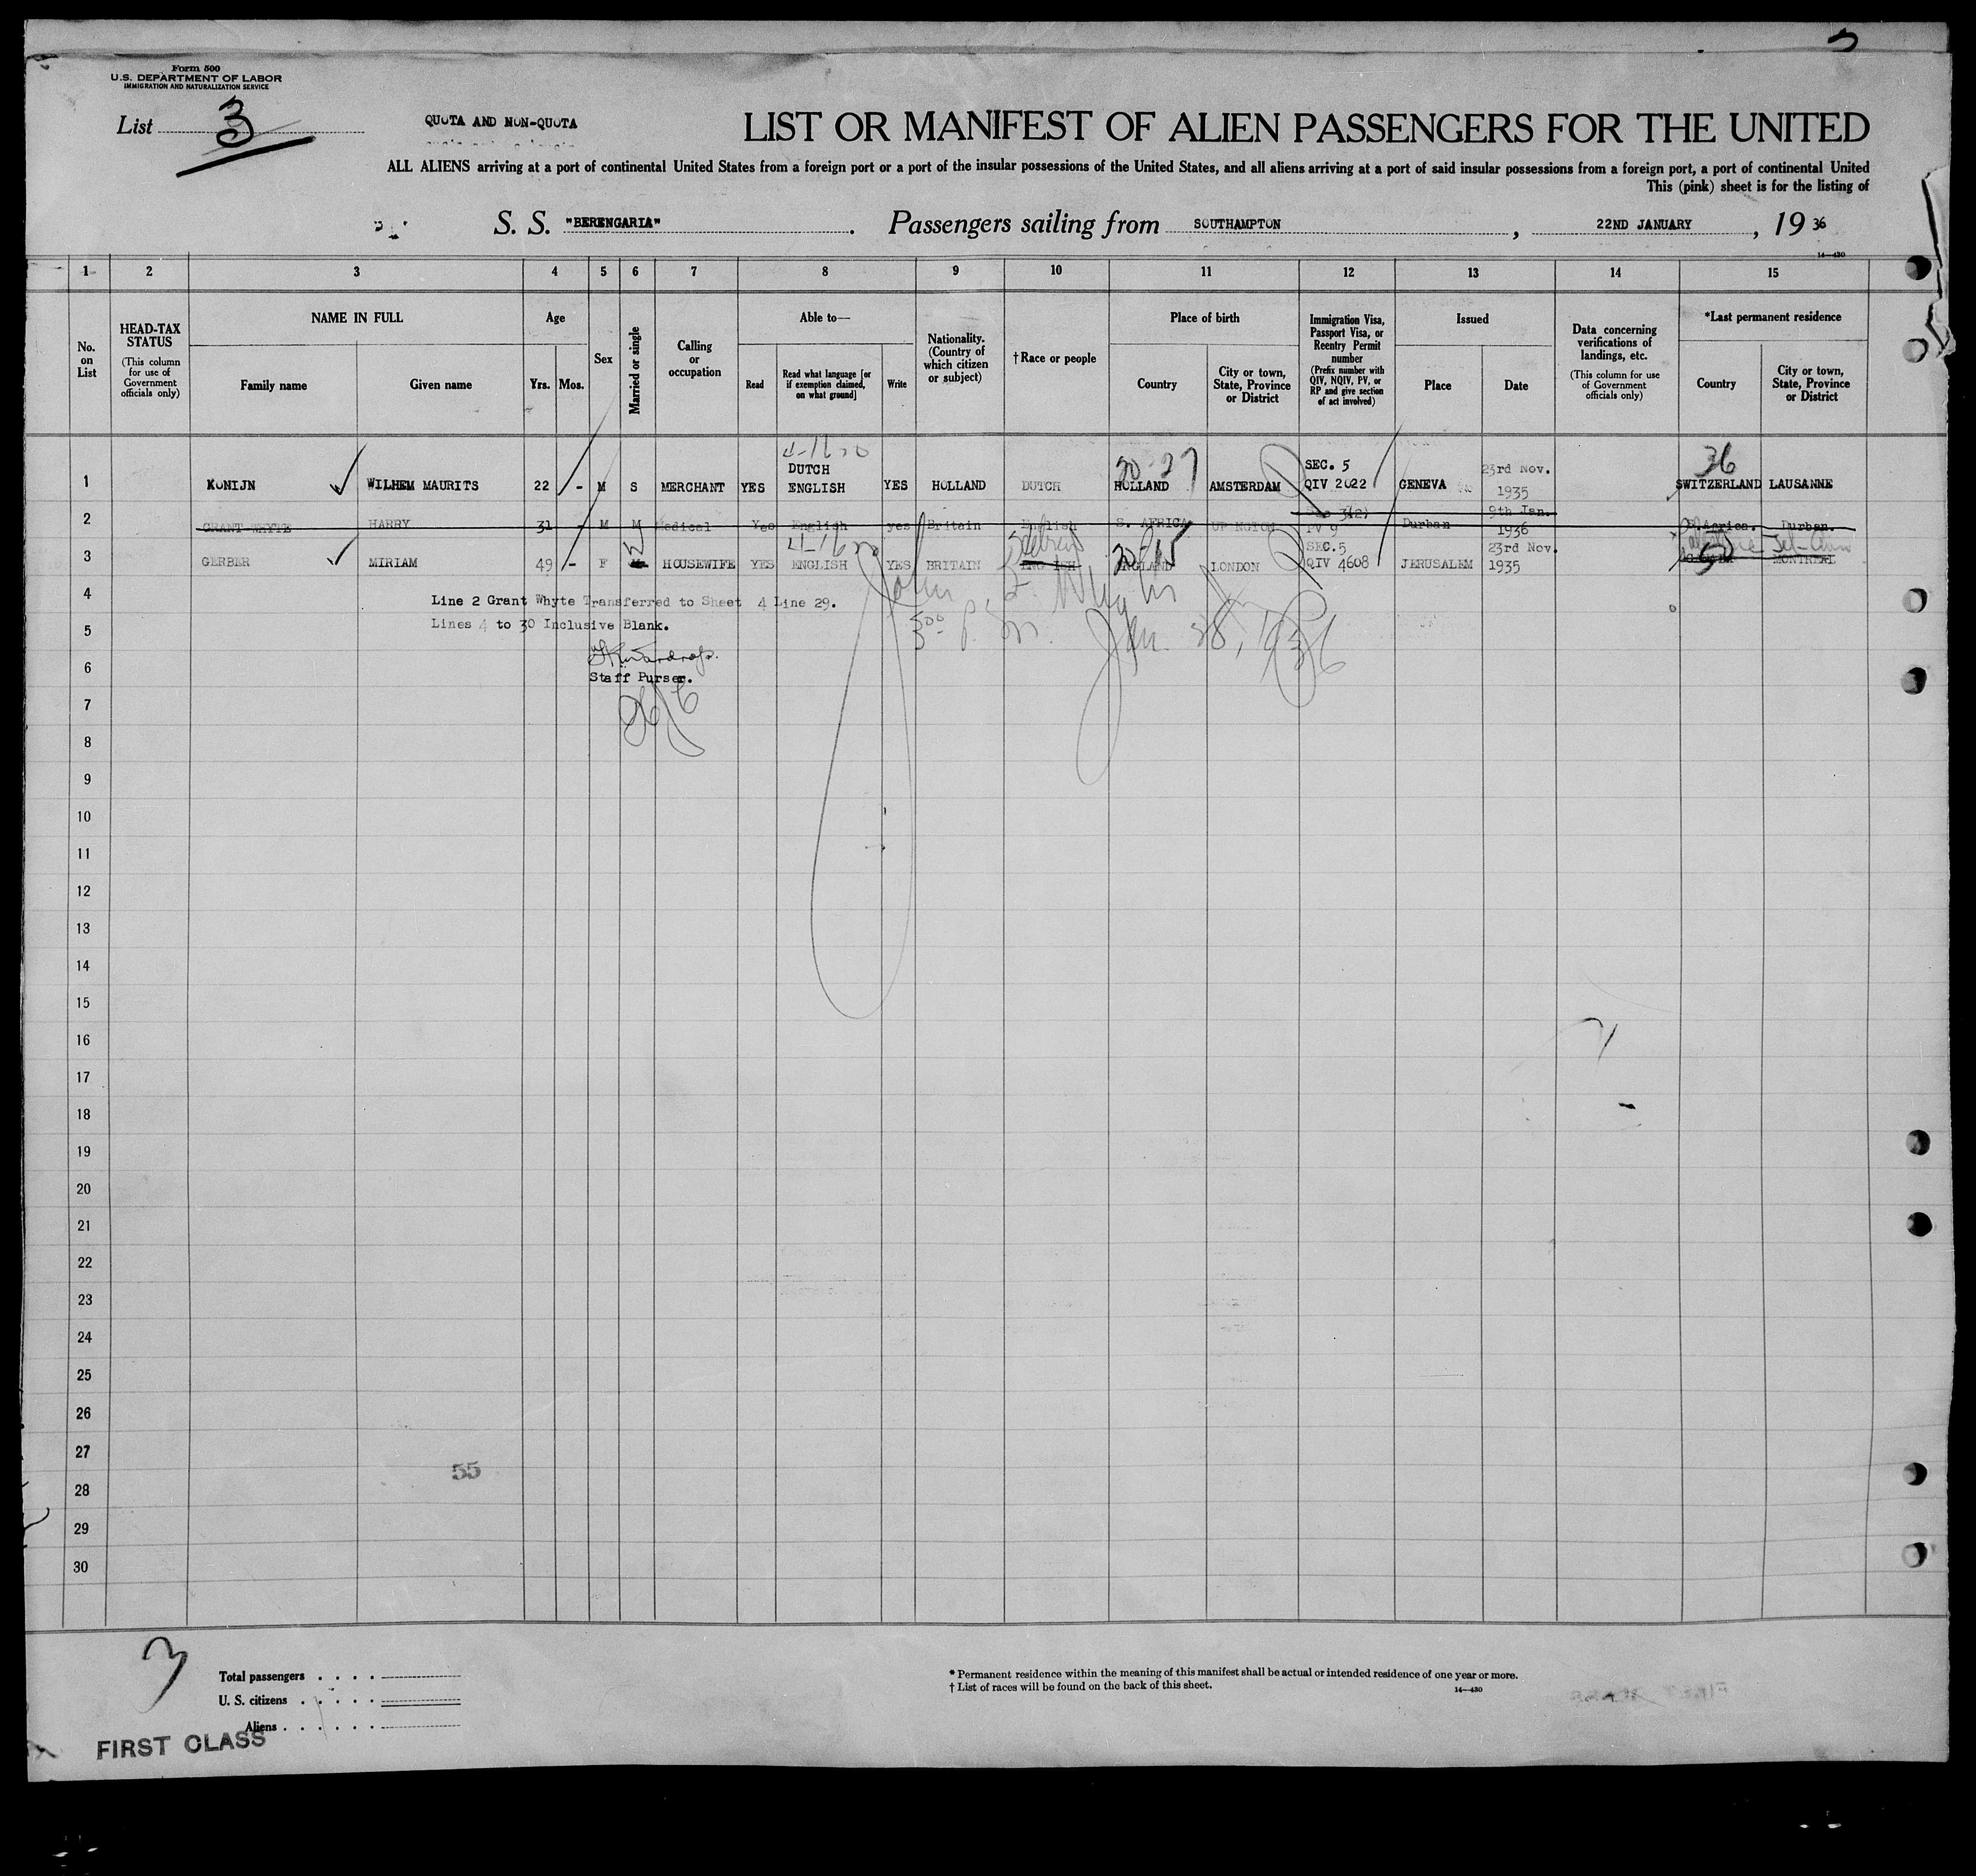 Form 500
U.S. DEPARTMENT OF LABOR
IMMIGRATION AND NATURALIZATION SERVICE
List 3
QUOTA AND NON-QUOTA
LIST OR MANIFEST OF ALIEN PASSENGERS FOR THE UNITED
ALL ALIENS arriving at a port of continental United States from a foreign port or a port of the insular possessions of the United States, and all aliens arriving at a port of said insular possessions from a foreign port, a port of continental United
This (pink) sheet is for the listing of
S. S. "BERENGARIA". Passengers sailing from SOUTHAMPTON, 22ND JANUARY, 19 36
14—430
1 2 3 4 5 6 7 8 9 10 11 12 13 14 15
No. on List
HEAD-TAX STATUS (This column for use of Government officials only)
NAME IN FULL
Family name Given name
Age
Yrs. Mos.
Sex
Married or single
Calling or occupation
Able to—
Read
Read what language [or if exemption claimed, on what ground]
Write
Nationality. (Country of which citizen or subject)
†Race or people
Place of birth
Country
City or town, State, Province or District
Immigration Visa, Passport Visa, or Reentry Permit number (Prefix number with QIV, NQIV, PV, or RP and give section of act involved)
Issued
Place Date
Data concerning verifications of landings, etc. (This column for use of Government officials only)
*Last permanent residence
Country
City or town, State, Province or District
1 KONIJN WILHEM MAURITS 22 - M S MERCHANT YES DUTCH ENGLISH YES HOLLAND DUTCH HOLLAND AMSTERDAM SEC. 5 QIV 2022 GENEVA 23rd Nov. 1935 36 SWITZERLAND LAUSANNE
2 GRANT-WHYTE HARRY 31 - M M Medical Yes English yes Britain English S. AFRICA Sec 3(2) PV 9 Durban 9th Jan. 1936 S.Africa. Durban.
3 GERBER MIRIAM 49 - F HOUSEWIFE YES ENGLISH YES BRITAIN Hebrew ENGLISH ENGLAND LONDON SEC.5 QIV 4608 JERUSALEM 23rd Nov. 1935 Palestine Tel-Aviv CANADA MONTREAL
4 Line 2 Grant Whyte Transferred to Sheet 4 Line 29.
5 Lines 4 to 30 Inclusive Blank.
6 Staff Purser.
Jan. 28, 1936
7
8
9
10
11
12
13
14
15
16
17
18
19
20
21
22
23
24
25
26
27
55
28
29
30
3
Total passengers . . . .
U. S. citizens . . . . .
Aliens . . . . . .
FIRST CLASS
* Permanent residence within the meaning of this manifest shall be actual or intended residence of one year or more.
† List of races will be found on the back of this sheet.
14—430